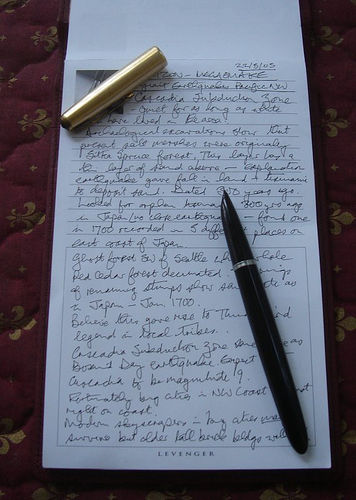 22/5/05
HORIZON - MEGAQUAKE
Giant Earthquakes Pacific NW
Cascadia Subduction Zone
- Quiet for as long as white
have lived in the area.
Archaeological excavations show that
present salt marshes were originally
Sitka Spruce forest. This layer has a
layer of sand above - explanation
earthquake gave fall in land & tsunami
to deposit sand. Dated 300 years ago.
Looked for orphan tsunami 300 yrs ago
in Japan, no close earthquake - found one
in 1700 recorded in 5 different places on
east coast of Japan
Ghost forest SW of Seattle whole
Red Cedar forest decimated. rings
of remaining stumps show same date as
in Japan - Jan. 1700.
Believe this gave rise to Thunderbird
legend in local tribes.
Cascadia Subduction Zone same as
Boxing Day earthquake. Expect
Cascadia to be magnitude 9.
Fortunately big cities in NW Coast not
right on coast.
Modern skyscrapers in big cities
survive but older tall bldgs will
LEVENGER